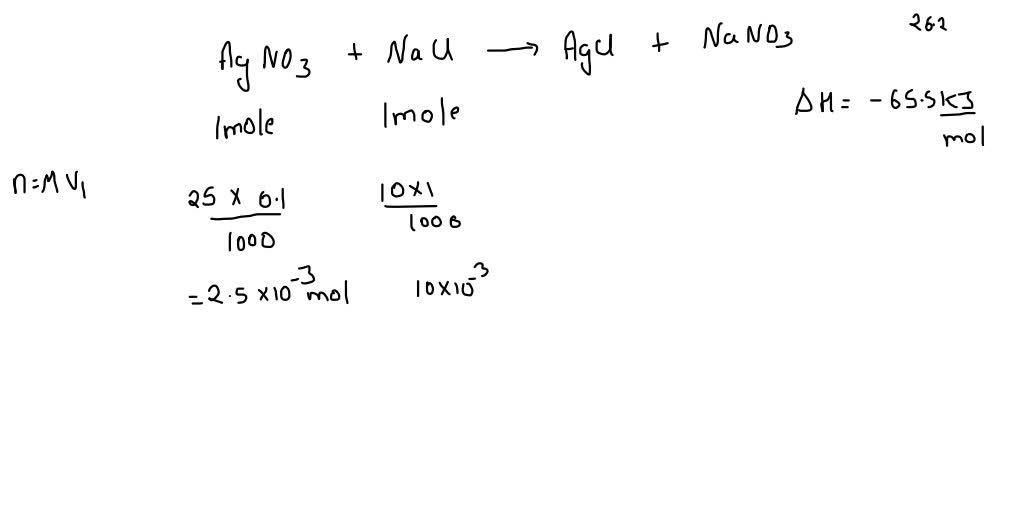 262
AgNO3 + NaCl → AgCl + NaNO3
1mole 1mole
ΔH = -65.5 kJ/mol
n=MV1
25 × 0.1/1000 10×1/1000
=2.5×10^-3 mol 10×10^-3